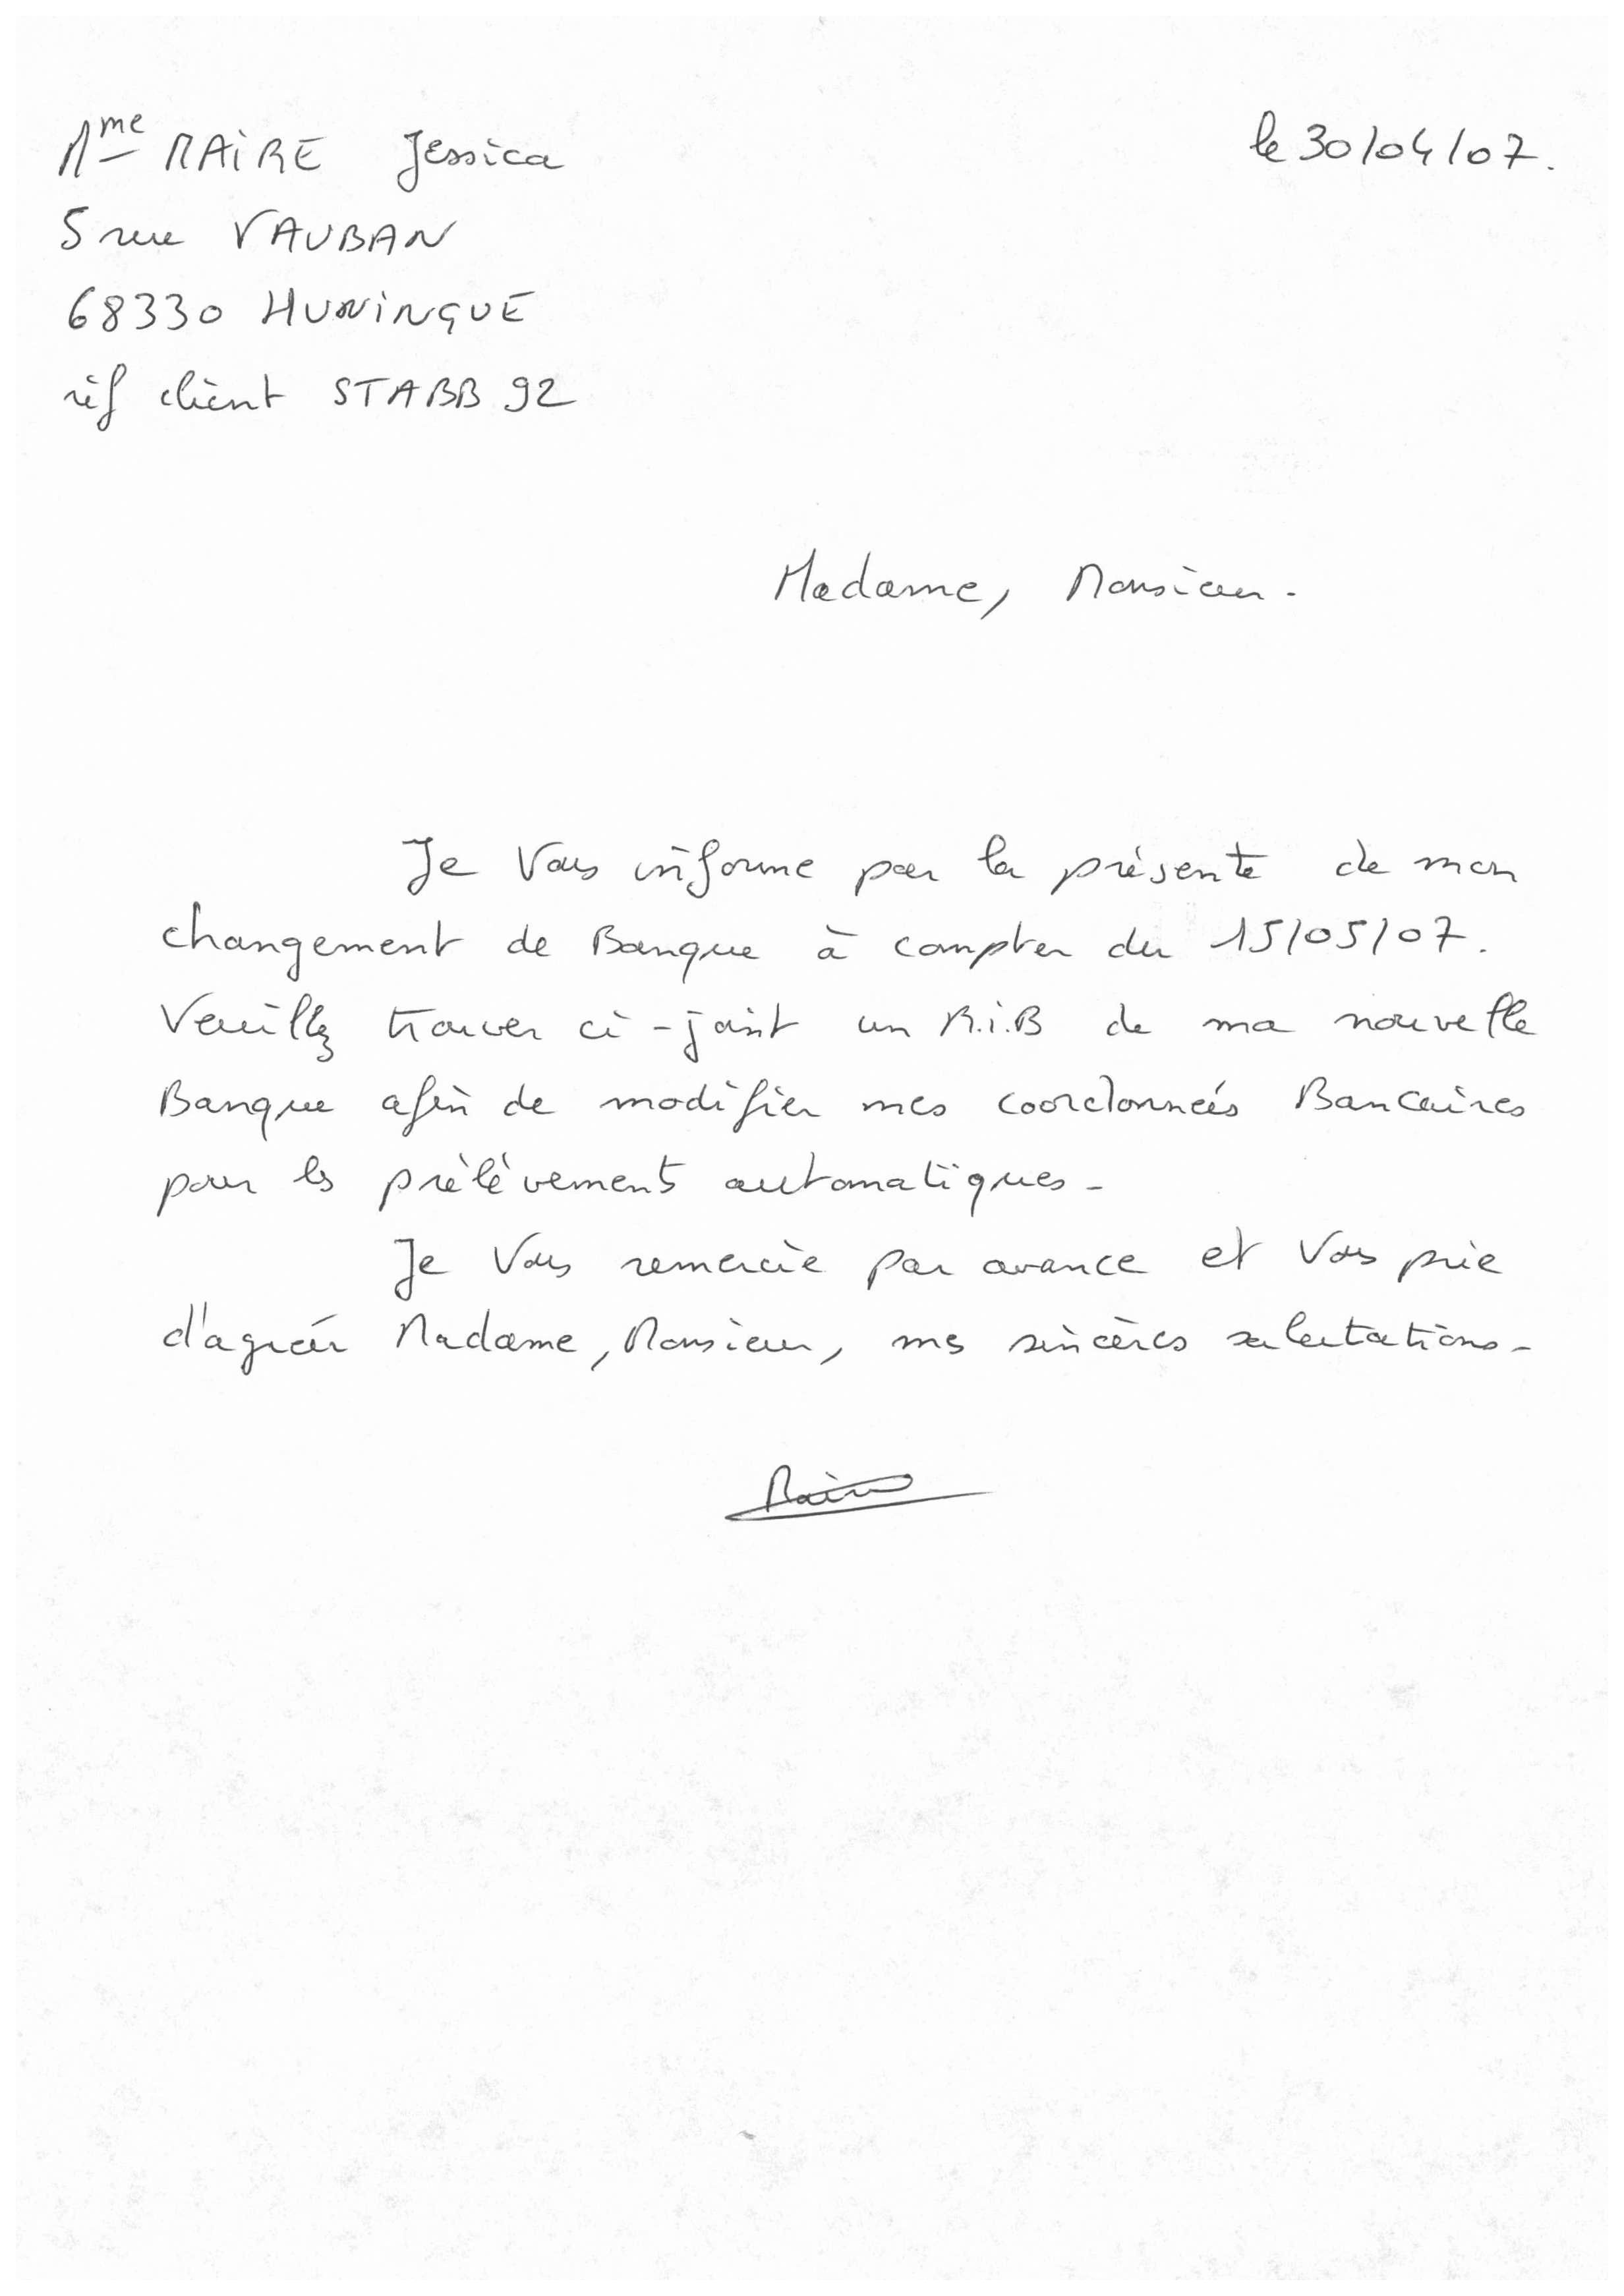 Mme MAIRE Jessica
le 30/04/07.
5 rue VAUBAN
68330 HUNINGUE
réf client STABB 92
Madame, Monsieur.
Je Vous informe par la présente de mon
changement de Banque à compter du 15/05/07.
Veuillez trouver ci-joint un R.i.B de ma nouvelle
Banque afin de modifier mes coordonneés Bancaires
pour les prélèvements automatiques-
Je Vous remercie par avance et Vous prie
d'agréer Madame, Monsieur, mes sincères salutations-
Maire